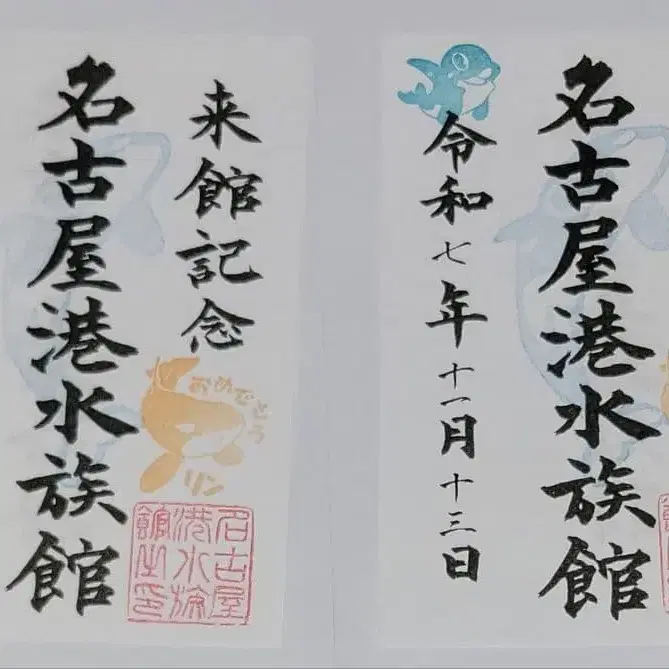 名古屋港水族館
来館記念
おめでとう
リン
名古屋
港水族
館之印
令和七年十一月十三日
名古屋港水族館